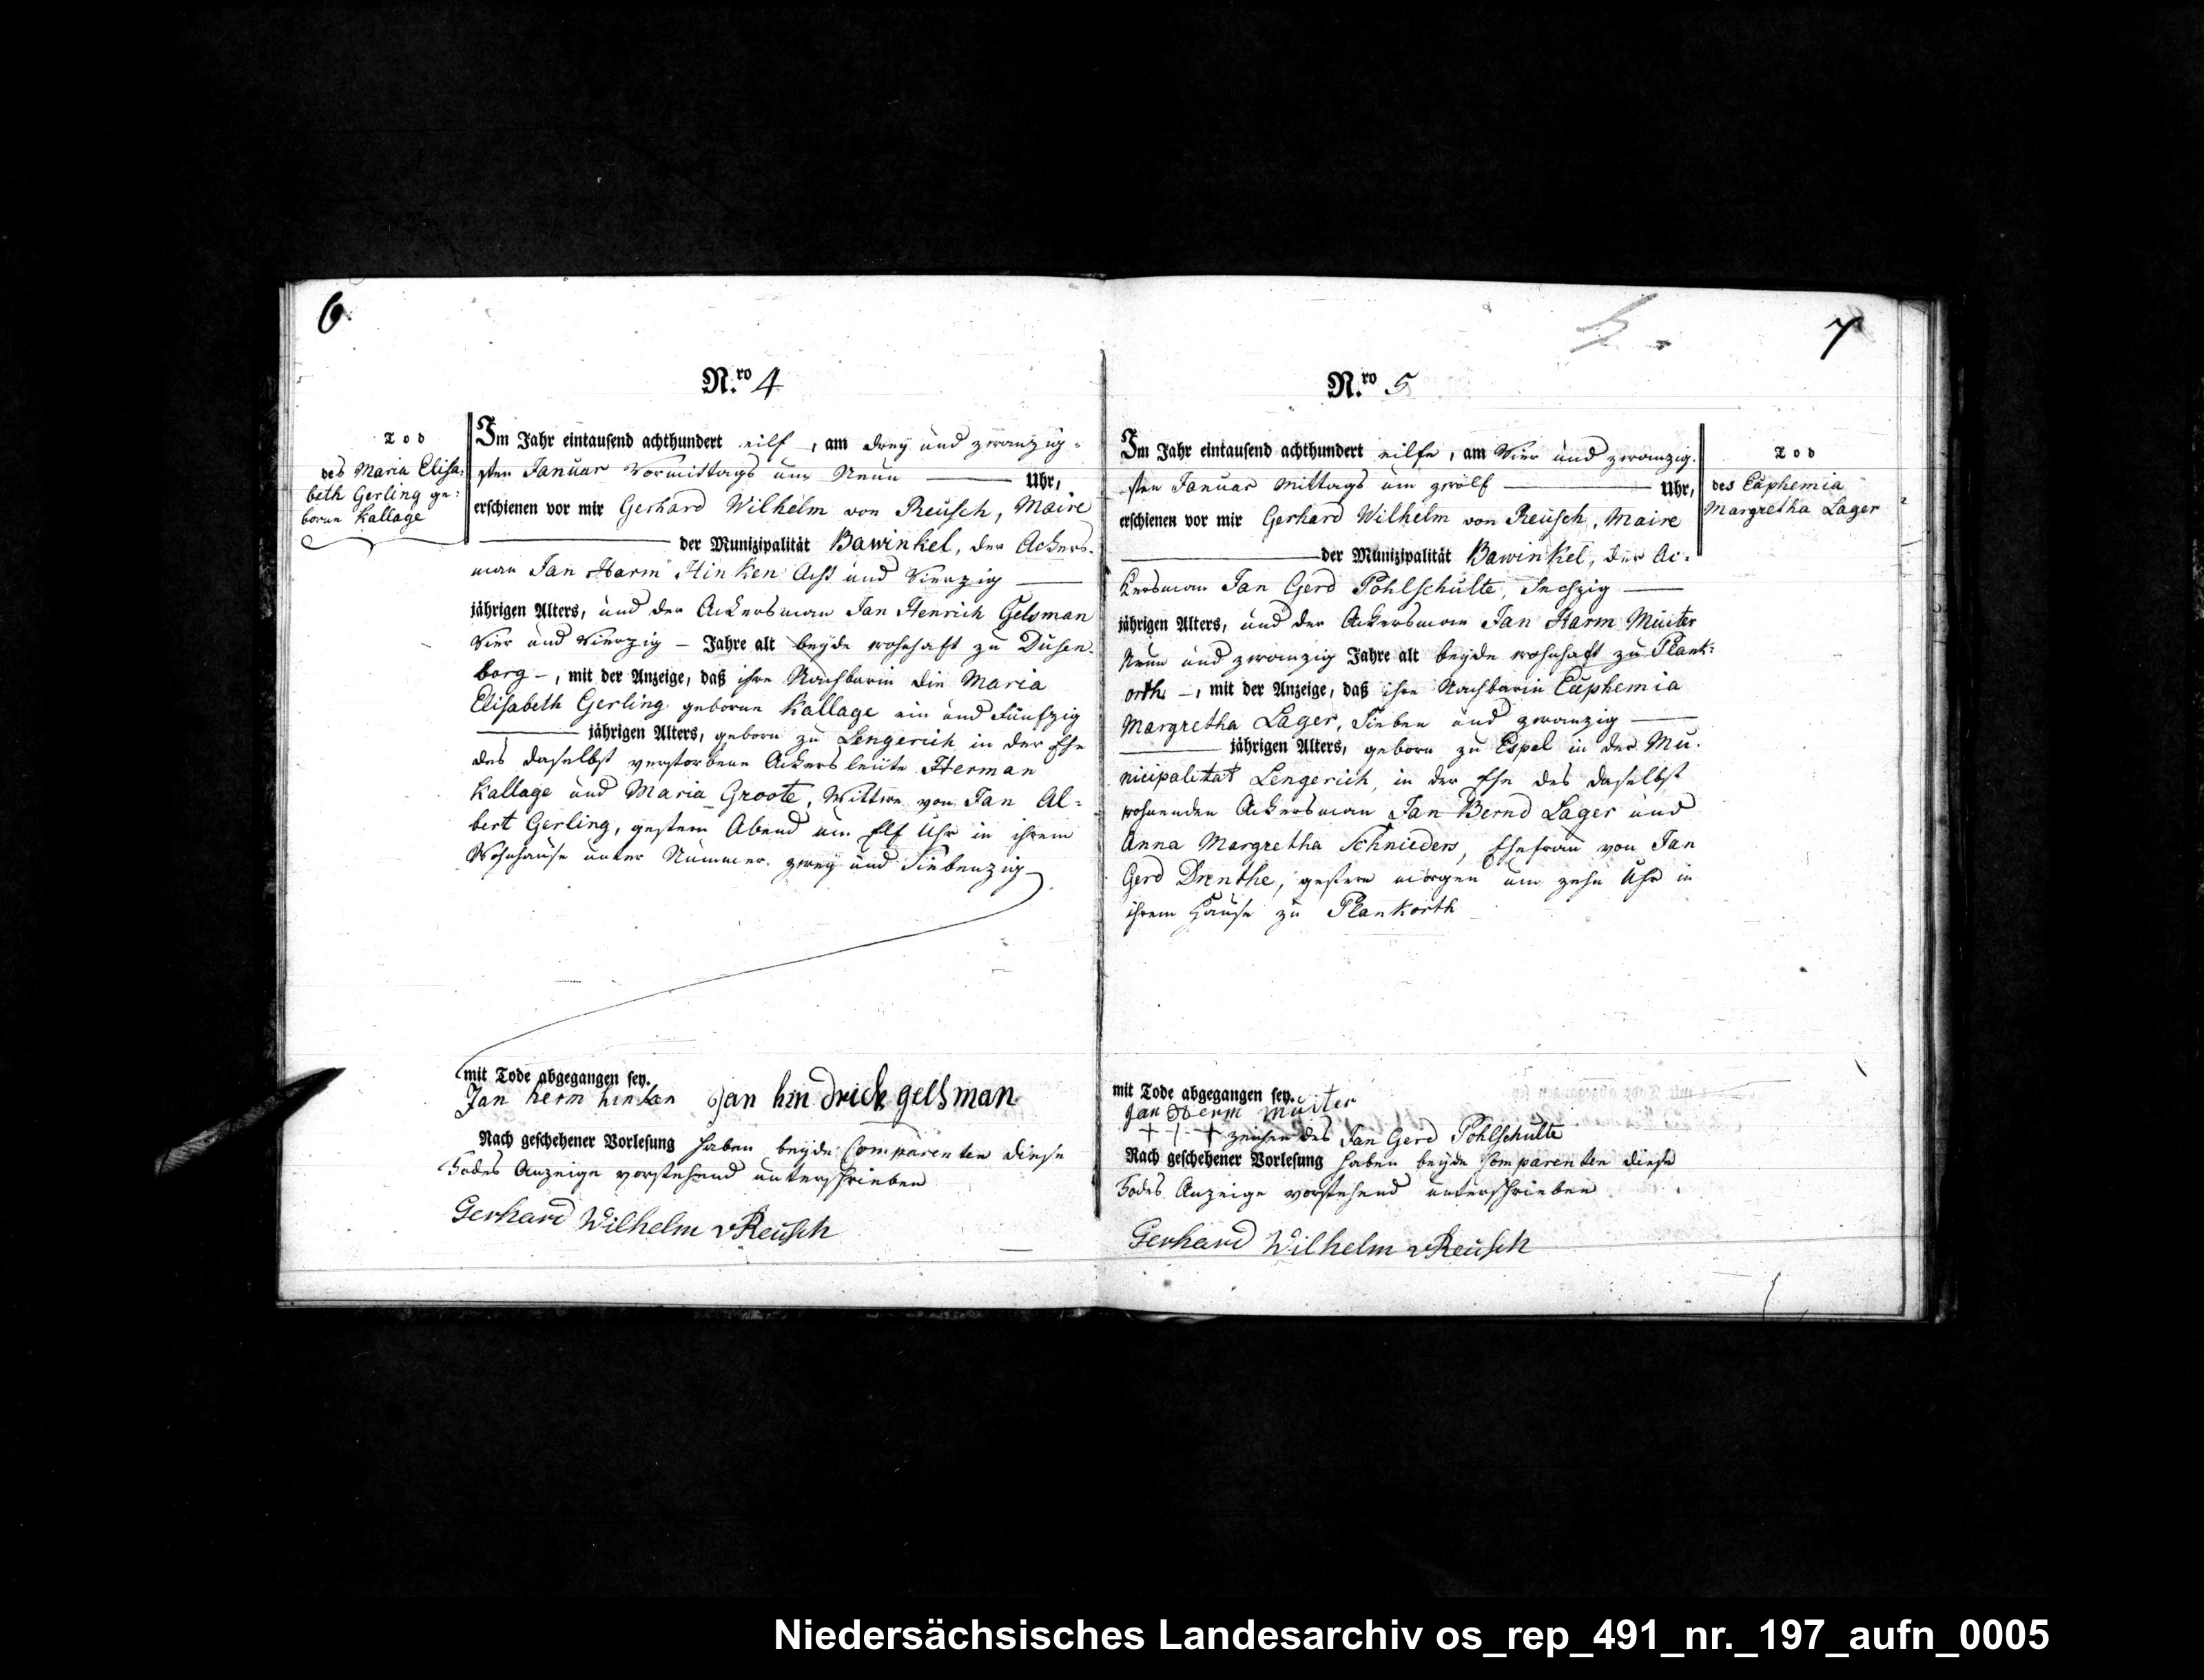 6.
N.ro 4
Tod
des Maria Elisa:
beth Gerling ge:
borne Kallage
Im Jahr eintausend achthundert eilf, am drey und zwanzig-
sten Januar Vormittags um Neun Uhr,
erschienen vor mir Gerhard Wilhelm von Reusch, Maire
der Munizipalität Bawinkel, der Ackers-
man Jan Harm Hinken Acht und Vierzig
jährigen Alters, und der Ackersman Jan Henrich Gelsman
Vier und Vierzig – Jahre alt beyde wohnhaft zu Düsen-
borg –, mit der Anzeige, daß ihre Nachbarin die Maria
Elisabeth Gerling geborne Kallage ein und Fünfzig
jährigen Alters, geborn zu Lengerich in der Ehe
des daselbst verstorbene Ackersleüte Herman
Kallage und Maria Groote, Wittwe von Jan Al-
bert Gerling, gestern Abend um Elf Uhr in ihrem
Wohnhause unter Nummer zwey und Siebenzig
mit Tode abgegangen sey.
Jan herm hinken Jan hindrick gelsman
Nach geschehener Vorlesung haben beyde Comparenten diese
Todes Anzeige vorstehend unterschrieben
Gerhard Wilhelm vReusch
7
N.ro 5
Tod
des Euphemia
Margretha Lager
Im Jahr eintausend achthundert eilfe, am Vier und zwanzig-
sten Januar Mittags um zwölf Uhr,
erschienen vor mir Gerhard Wilhelm von Reusch, Maire
der Munizipalität Bawinkel, der Ac-
kersman Jan Gerd Pohlschulte, Sechzig
jährigen Alters, und der Ackersman Jan Harm Müiter
Neun und zwanzig Jahre alt beyde wohnhaft zu Plank-
orth –, mit der Anzeige, daß ihre Nachbarin Euphemia
Margretha Lager, Sieben und zwanzig
jährigen Alters, geborn zu Espel in der Mu-
nicipalitat Lengerich, in der Ehe des daselbst
wohnenden Ackersman Jan Bernd Lager und
Anna Margretha Schnieders, Ehefrau von Jan
Gerd Drenthe, gestern morgen um zehn Uhr in
ihrem Hause zu Plankorth
mit Tode abgegangen sey.
Jan Herm Müiter
+ + + zeichen des Jan Gerd Pohlschulte
Nach geschehener Vorlesung haben beyde Comparenten diese
Todes Anzeige vorstehend unterschrieben
Gerhard Wilhelm vReusch
Niedersächsisches Landesarchiv os_rep_491_nr._197_aufn_0005